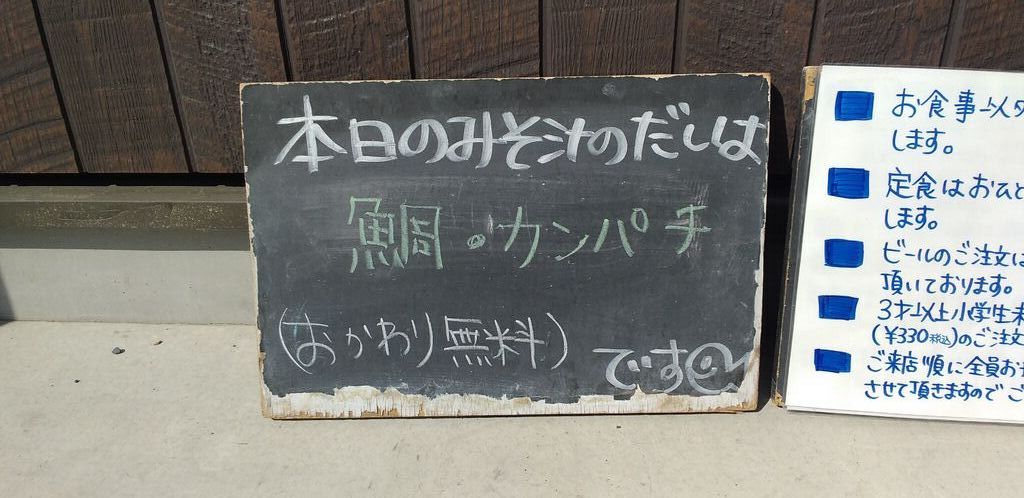 本日のみそ汁のだしは
鯛・カンパチ
(おかわり無料)
です
お食事以外
します。
定食はおひと
します。
ビールのご注文は
頂いております。
3才以上小学生未
(¥330税込)のご注文
ご来店順に全員お
させて頂きますのでご